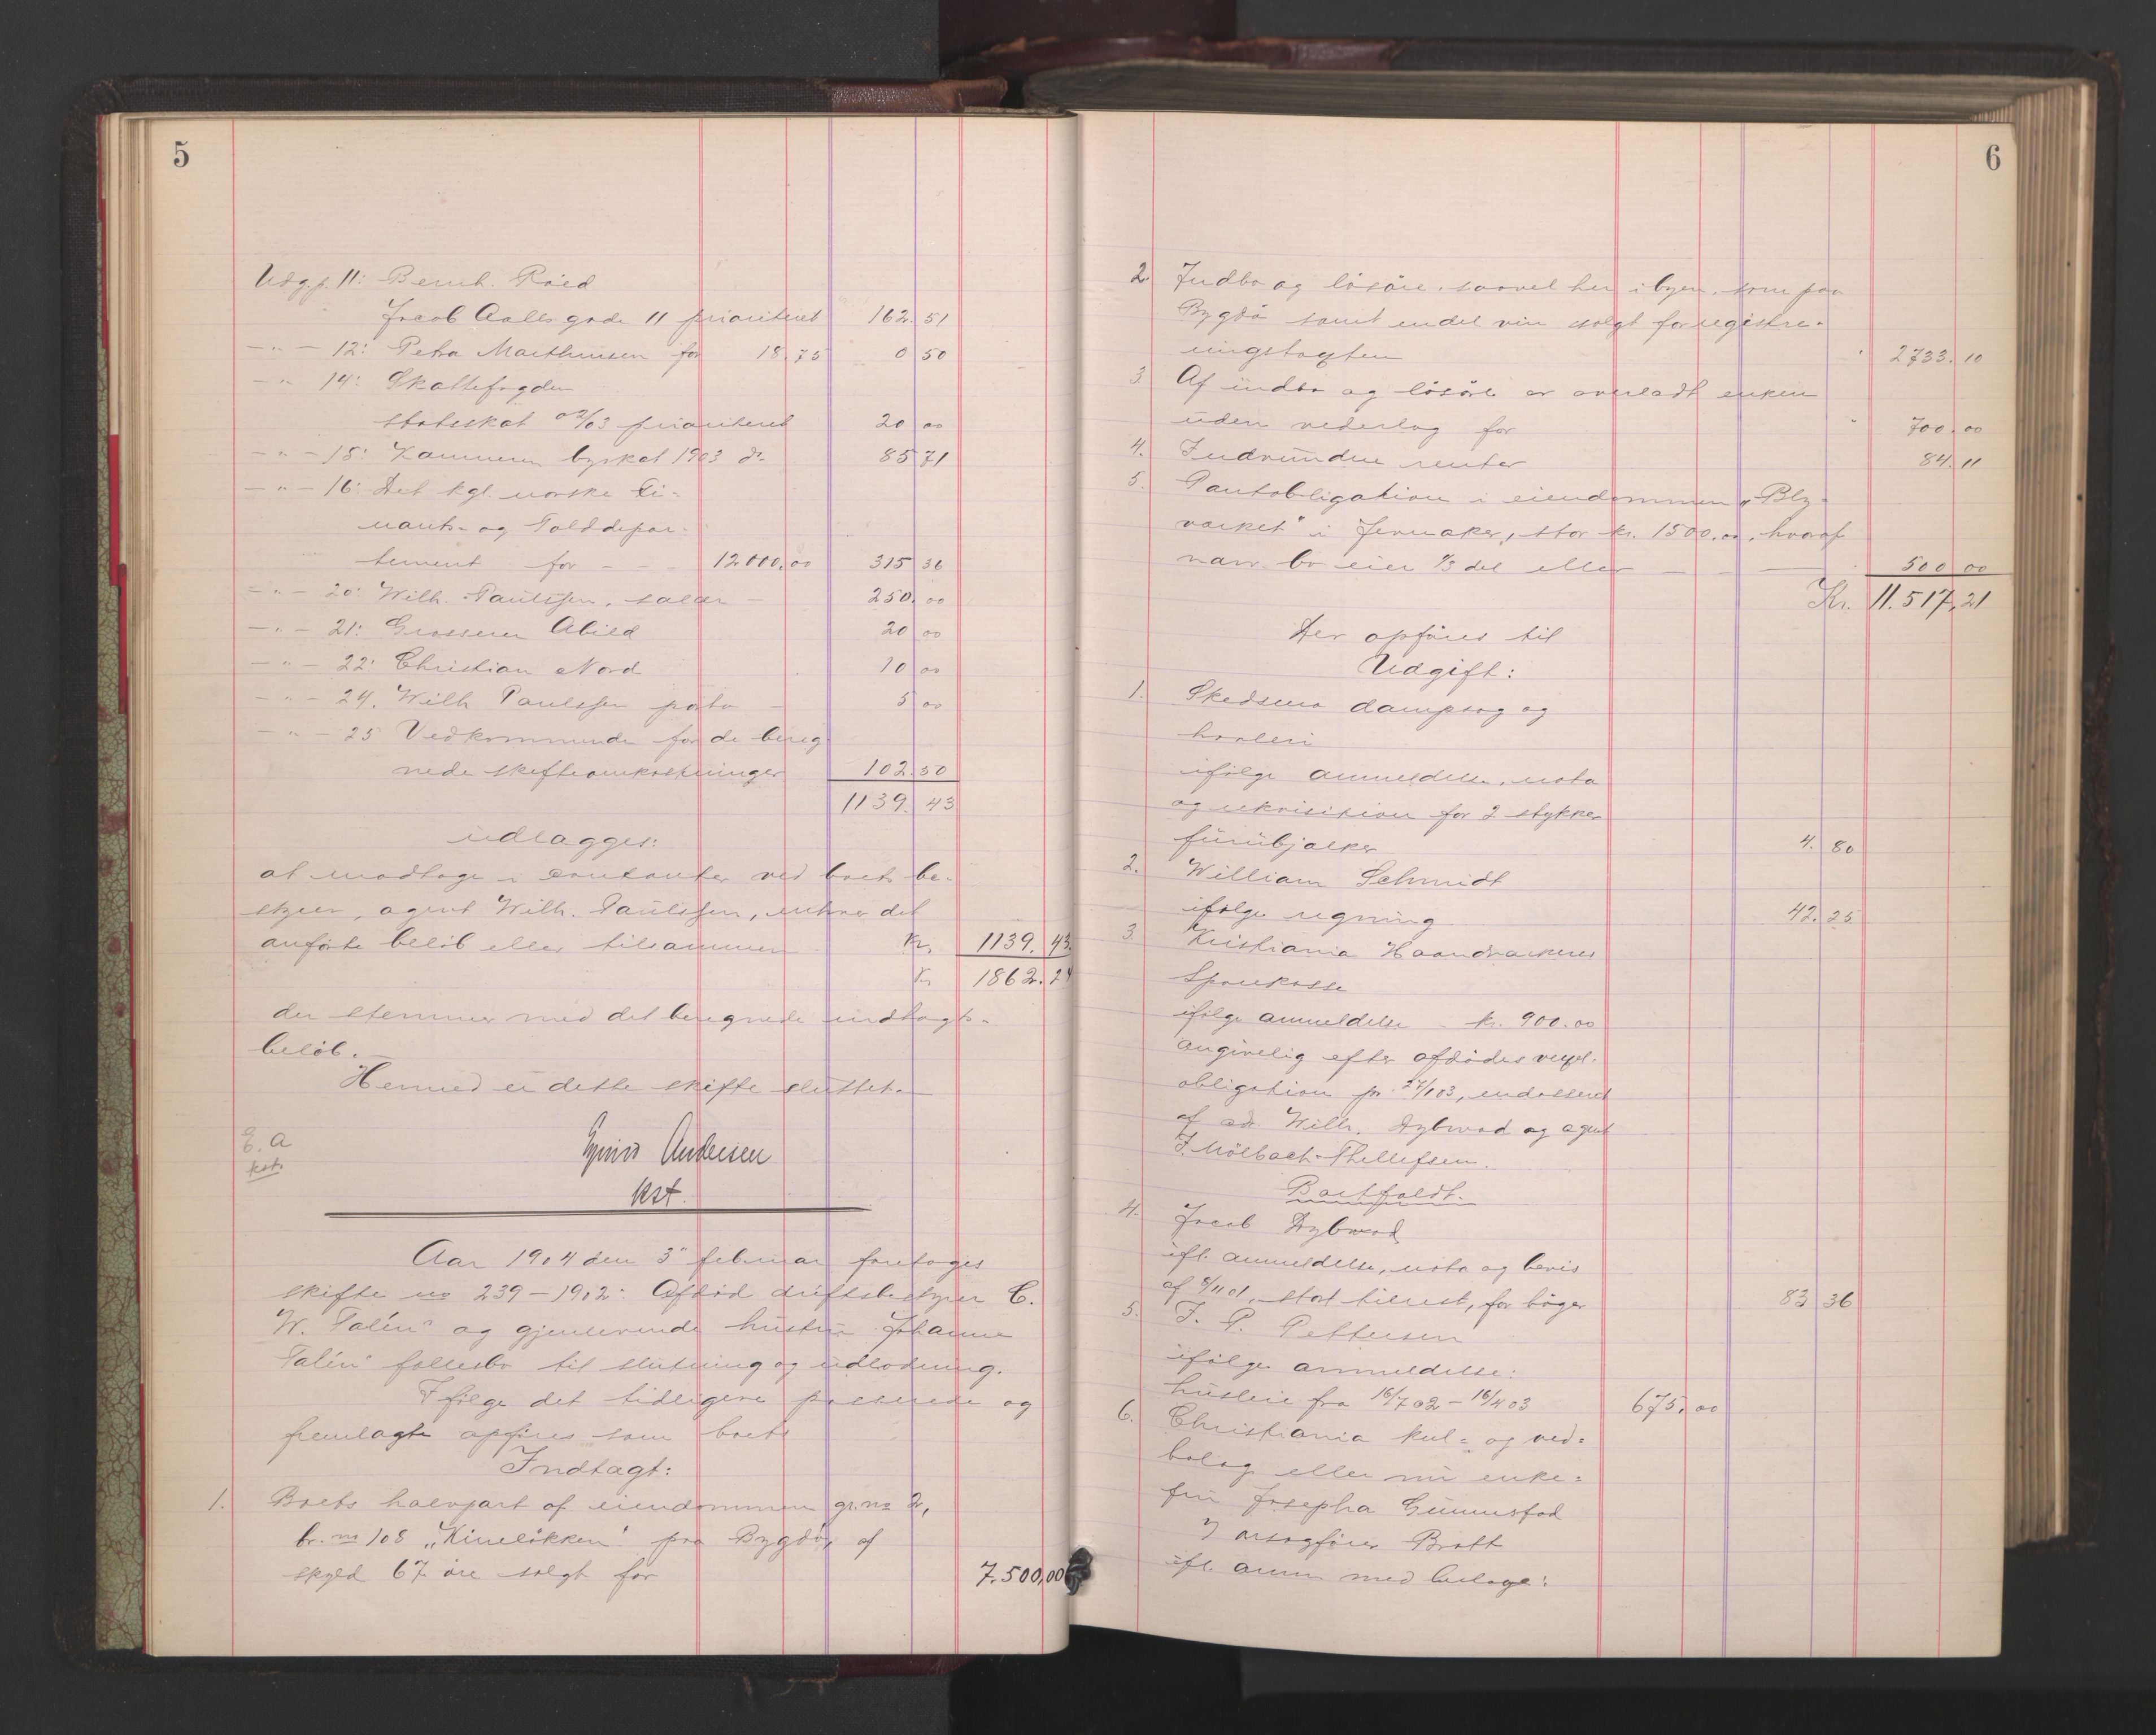 5
Udg.p. 11: Bernh. Röed
Jacob Aalls gade 11 prioriteret 162. 51
— " — 12: Petra Marthinsen for 18.75 0 50
— " — 14: Skattefogden
statsskat 02/03 prioriteret 20 00
— " — 15: Kæmneren byskat 1903 do 85 71
— " — 16: Det kgl. norske Fi-
nants- og Tolddepar-
tement for — — 12000.00 315 36
— " — 20: Wilh. Paulssen, salær — 250. 00
— " — 21: Grosserer Abild 20 00
— " — 22: Christian Nord 10 00
— " — 24. Wilh Paulssen porto — 5 00
— " — 25 Vedkommende for de bereg
nede skifteomkostninger 102.50
1139. 43
udlægges:
at modtage i contanter ved boets be-
styrer, agent Wilh. Paulssen, enhver det
anførte belöb eller tilsammen Kr. 1139. 43.
Kr 1862. 24
der stemmer med det beregnede indtægts-
belöb.—
Hermed er dette skifte sluttet.—
E. a
kst.
Ejvind Andersen
kst.
Aar 1904 den 3" februar foretoges
skifte no 239 – 1902: Afdöd driftsbestyrer C.
W. Talén's og gjenlevende hustru Johanne
Talén's fællesbo til slutning og udlodning.
Ifölge det tidligere passerede og
fremlagte opføres som boets
Indtægt:
1. Boets halvpart af eiendommen gr. no 2,
br. no 108 „Kinelökken" paa Bygdö, af
skyld 67 öre solgt for 7.500,00
6
2. Indbo og lösöre, saavel her i byen, som paa
Bygdö samt endel vin solgt for registre-
ringstaxten " 2733. 10
3 Af indbo og lösöre er overladt enken
uden vederlag for " 700. 00
4. Indvundne renter 84. 11
5. Pantobligation i eiendommen „Bly-
værket" i Jevnaker, stor kr. 1500.00, hvoraf
nærv. bo eier 1/3 del eller — — — 500 00
Kr. 11.517,21
Der opføres til
Udgift:
1. Skedsmo dampsag og
høvleri
ifölge anmeldelse, nota
og rekvisition for 2 stykker
furubjælker 4. 80
2. William Schmidt
ifölge regning 42. 25
3. Kristiania Haandværkeres
Sparekasse
ifölge anmeldelse - kr. 900.00
angivelig efter afdödes vexel-
obligation pr. 27/1 03, endosseret
af adv. Wilh. Dybwad og agent
J. Mölbach-Thellefsen.
Bortfaldt.
4. Jacob Dybwad
ifl. anmeldelse, nota og bevis
af 9/11 01, stort tilrest, for böger 83 36
5. J. P. Pettersen
ifölge anmeldelse:
husleie fra 16/7 02 – 16/4 03 675.00
6. Christiania kul- og ved-
bolag eller nu enke-
fru Josepha Gunnestad
v/ orsagfører Bratt
ifl. anm med bilage: